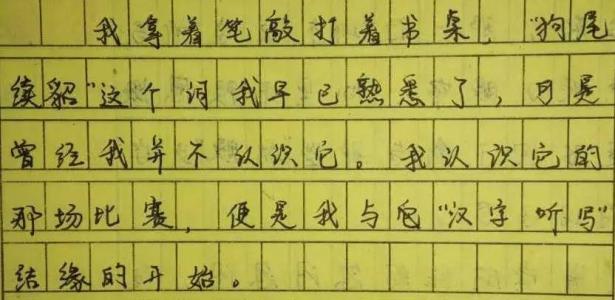 我拿着笔敲打着书桌，“狗尾
续貂”这个词我早已熟悉了，可是
曾经我并不认识它。我认识它的
那场比赛，便是我与它“汉字听写”
结缘的开始。